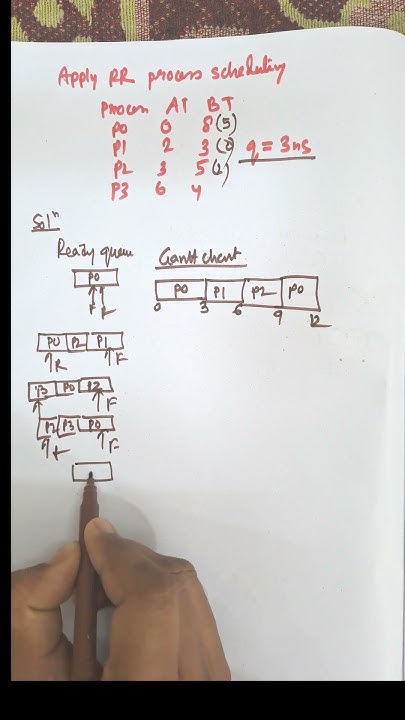 Apply RR process scheduling
Process AT BT
P0 0 8 (5)
P1 2 3 (0) q = 3ns
P2 3 5 (2)
P3 6 4
Solⁿ
Ready queue Gantt chart
P0
F R
P0 P1 P2 P0
0 3 6 9 12
P0 P2 P1
R F
P3 P0 P2
F
P2 P3 P0
R F